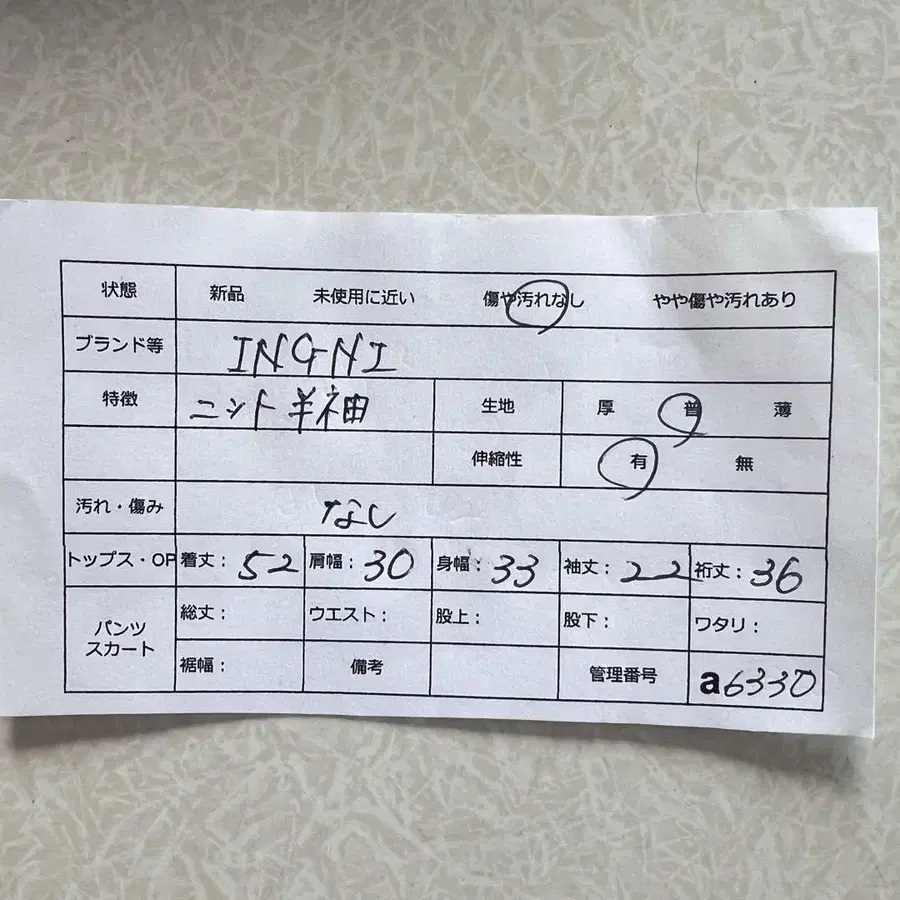 状態 新品 未使用に近い 傷や汚れなし やや傷や汚れあり
ブランド等 INGNI
特徴 ニット半袖 生地 厚 普 薄
伸縮性 有 無
汚れ・傷み なし
トップス・OP 着丈: 52 肩幅: 30 身幅: 33 袖丈: 22 裄丈: 36
パンツ スカート 総丈: ウエスト: 股上: 股下: ワタリ:
裾幅: 備考 管理番号 a6330